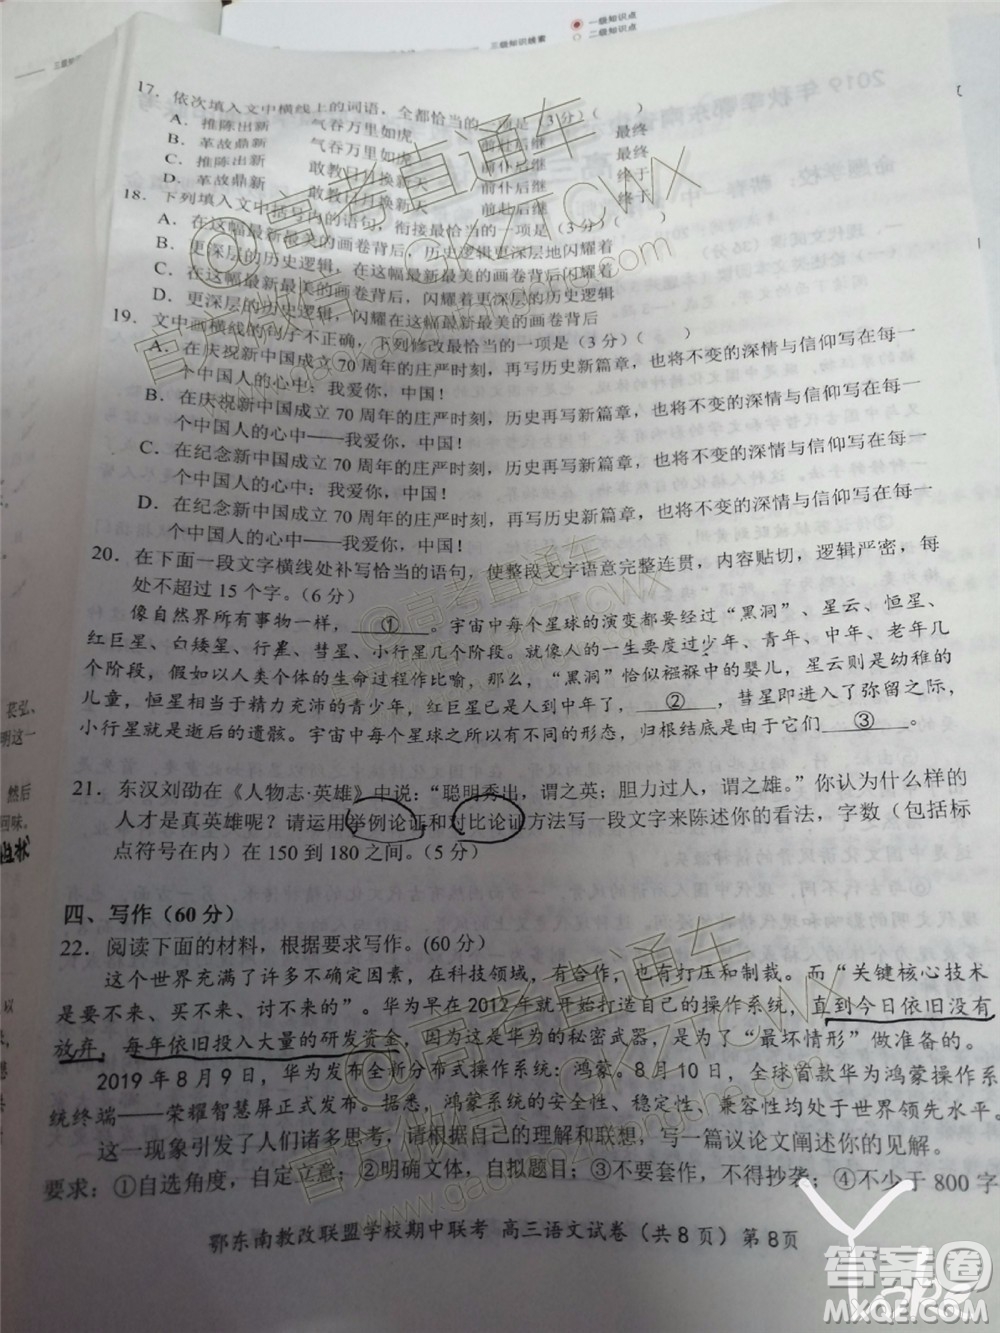 一级知识点
二级知识点
三级知识线索
17．依次填入文中横线上的词语，全都恰当的一项是（3分）（　　）
A．推陈出新　气吞万里如虎　前仆后继　最终
B．革故鼎新　气吞万里如虎　前赴后继　最终
C．推陈出新　敢教日月换新天　前仆后继　终于
D．革故鼎新　敢教日月换新天　前赴后继　终于
18．下列填入文中括号内的语句，衔接最恰当的一项是（3分）（　　）
A．在这幅最新最美的画卷背后，历史逻辑更深层地闪耀着
B．更深层的历史逻辑，在这幅最新最美的画卷背后闪耀着
C．在这幅最新最美的画卷背后，闪耀着更深层的历史逻辑
D．更深层的历史逻辑，闪耀在这幅最新最美的画卷背后
19．文中画横线的句子不正确，下列修改最恰当的一项是（3分）（　　）
A．在庆祝新中国成立70周年的庄严时刻，再写历史新篇章，也将不变的深情与信仰写在每一
个中国人的心中：我爱你，中国！
B．在庆祝新中国成立70周年的庄严时刻，历史再写新篇章，也将不变的深情与信仰写在每一
个中国人的心中——我爱你，中国！
C．在纪念新中国成立70周年的庄严时刻，历史再写新篇章，也将不变的深情与信仰写在每一
个中国人的心中：我爱你，中国！
D．在纪念新中国成立70周年的庄严时刻，再写历史新篇章，也将不变的深情与信仰写在每一
个中国人的心中——我爱你，中国！
20．在下面一段文字横线处补写恰当的语句，使整段文字语意完整连贯，内容贴切，逻辑严密，每
处不超过15个字。（6分）
像自然界所有事物一样，①。宇宙中每个星球的演变都要经过“黑洞”、星云、恒星、
红巨星、白矮星、行星、彗星、小行星几个阶段。就像人一生要经过少年、青年、中年、老年几
个阶段，假如以人类个体的生命过程作比喻，那么，“黑洞”恰似襁褓中的婴儿，星云则是幼稚的
儿童，恒星相当于精力充沛的青少年，红巨星已是人到中年，②，彗星是进入了弥留之际，
小行星就是逝后的遗骸。宇宙中每个星球之所以有不同的形态，归根结底是由于它们③。
21．东汉刘劭在《人物志·英雄》中说：“聪明秀出，谓之英；胆力过人，谓之雄。”你认为什么样的
人才是真英雄呢？请运用举例论证和对比论证方法写一段文字来陈述你的看法，字数（包括标
点符号在内）在150到180之间。（5分）
四、写作（60分）
22．阅读下面的材料，根据要求写作。（60分）
这个世界充满了许多不确定因素，在科技领域，有合作，也有打压和制裁。而“关键核心技术
是要不来、买不来、讨不来的”。华为早在2012年就开始打造自己的操作系统，直到今日依旧没有
放弃，每年依旧投入大量的研发资金，因为这是华为的秘密武器，是为了“最坏情形”做准备的。
2019年8月9日，华为发布全新分布式操作系统：鸿蒙。8月10日，全球首款华为鸿蒙操作系
统终端——荣耀智慧屏正式发布。据悉，鸿蒙系统的安全性、稳定性、兼容性均处于世界领先水平。
这一现象引发了人们诸多思考，请根据自己的理解和联想，写一篇议论文阐述你的见解。
要求：①自选角度，自定立意；②明确文体，自拟题目；③不要套作，不得抄袭；④不少于800字
鄂东南教改联盟学校期中联考　高三语文试卷（共8页）第8页
官方微信@高考直通车
www.gaokaozhitongche.com
答案圈
MXQE.COM